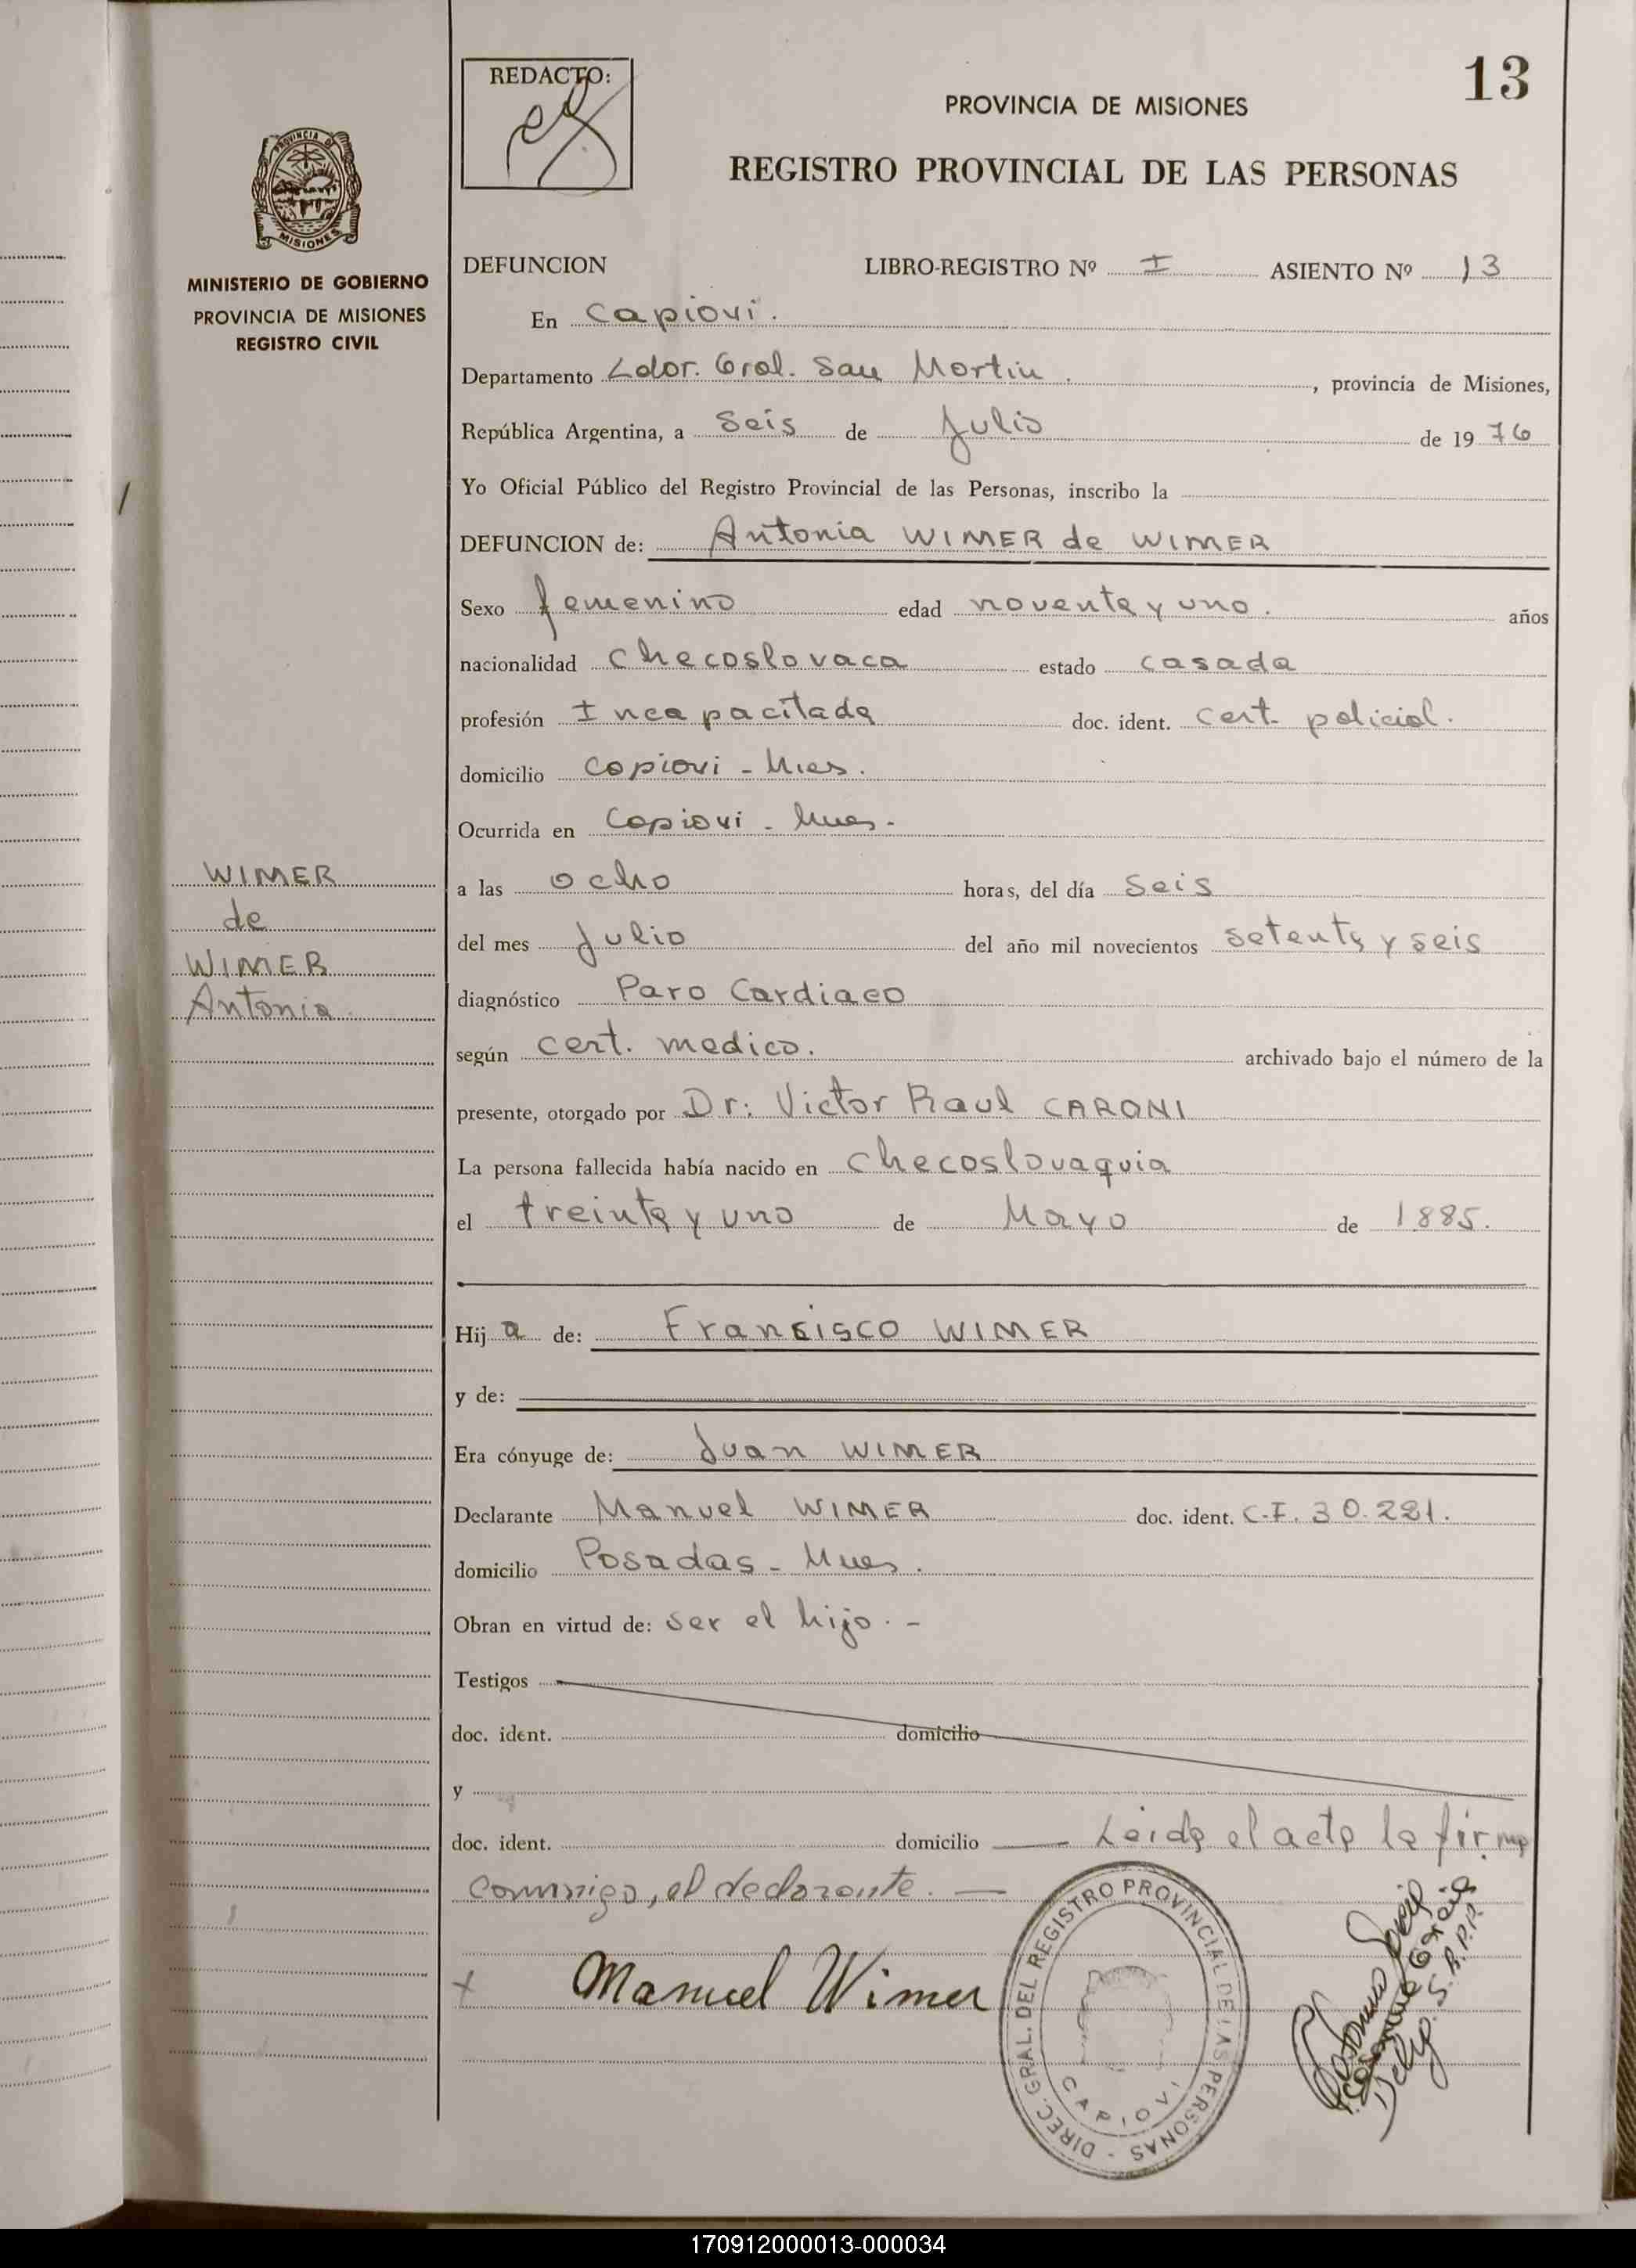 13
REDACTO:
PROVINCIA DE MISIONES
REGISTRO PROVINCIAL DE LAS PERSONAS
PROVINCIA DE MISIONES
MINISTERIO DE GOBIERNO
PROVINCIA DE MISIONES
REGISTRO CIVIL
DEFUNCION LIBRO-REGISTRO Nº I ASIENTO Nº 13
En Capiovi.
Departamento Ldor. Gral. San Martin, provincia de Misiones,
República Argentina, a seis de Julio de 1976
Yo Oficial Público del Registro Provincial de las Personas, inscribo la
DEFUNCION de: Antonia WIMER de WIMER
Sexo femenino edad noventa y uno. años
nacionalidad checoslovaca estado casada
profesión Incapacitada doc. ident. cert. policial.
domicilio Capiovi - Mnes.
Ocurrida en Capiovi - Mnes.
WIMER
de
WIMER
Antonia
a las ocho horas, del día seis
del mes Julio del año mil novecientos setenta y seis
diagnóstico Paro Cardiaco
según cert. medico. archivado bajo el número de la
presente, otorgado por Dr: Victor Raul CARONI
La persona fallecida había nacido en checoslovaquia
el treinta y uno de Mayo de 1885.
Hija de: Francisco WIMER
y de:
Era cónyuge de: Juan WIMER
Declarante Manuel WIMER doc. ident. C.I. 30.221.
domicilio Posadas - Mnes.
Obran en virtud de: ser el hijo. -
Testigos
doc. ident. domicilio
y
doc. ident. domicilio — Leida el acta la firma
conmigo, el declarante. —
Manuel Wimer
DIREC. GRAL. DEL REGISTRO PROVINCIAL DE LAS PERSONAS -
CAPIOVI
170912000013-000034